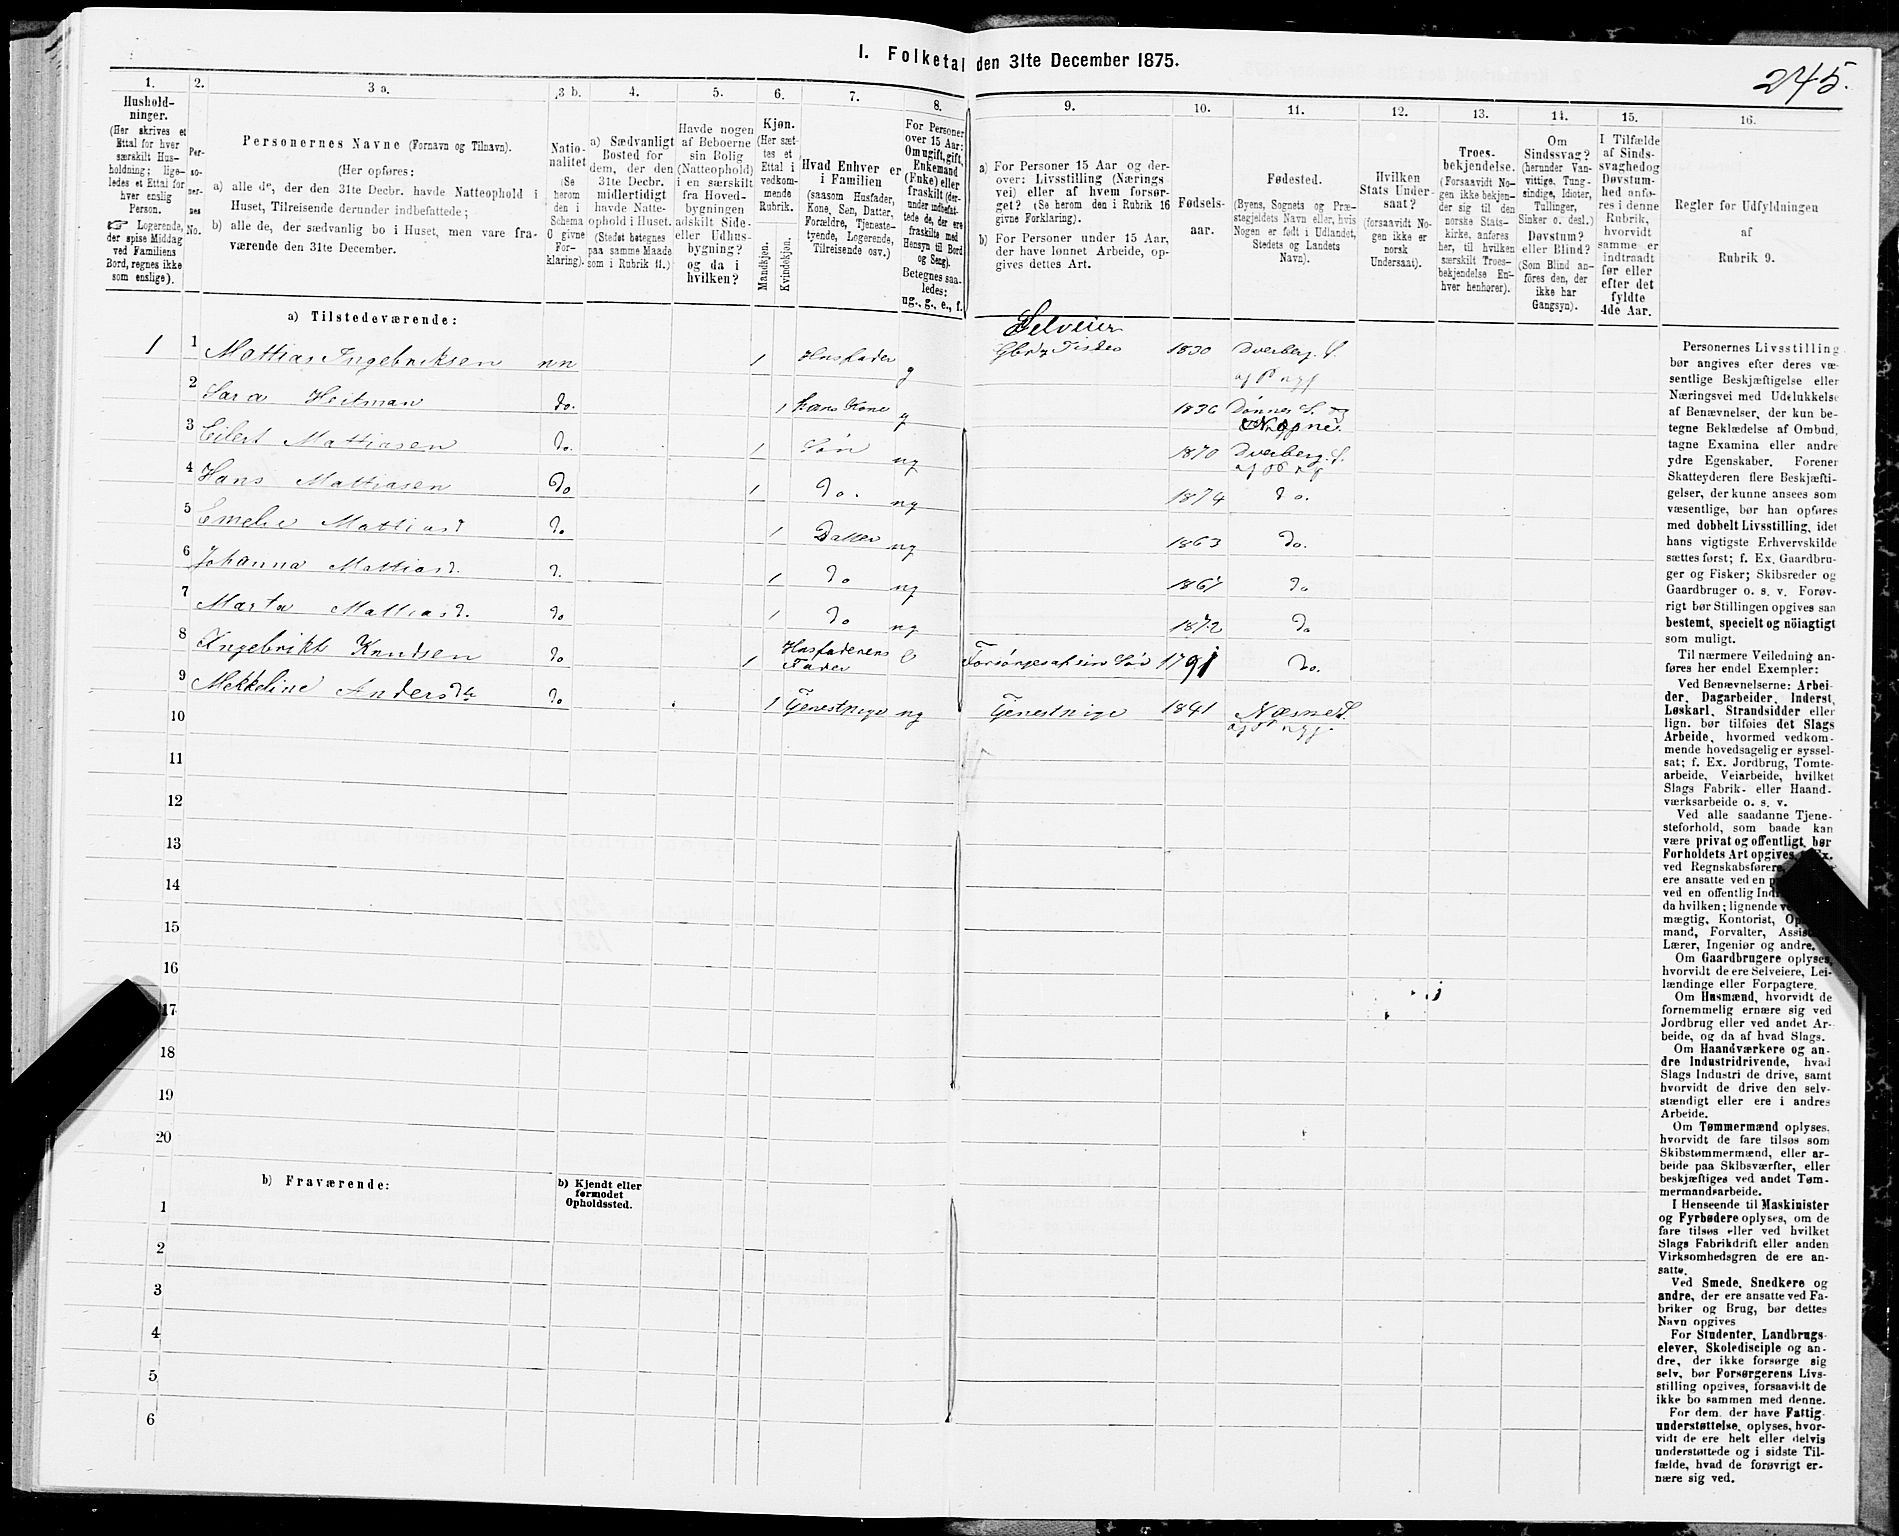 I. Folketal den 31te December 1875.
245.
1.
Hushold-
ninger.
(Her skrives et
Ettal for hver
særskilt Hus-
holdning; lige-
ledes et Ettal for
hver enslig
Person.
☞ Logerende,
der spise Middag
ved Familiens
Bord, regnes ikke
som enslige).
2.
Per-
so-
ner-
nes
No.
3 a.
Personernes Navne (Fornavn og Tilnavn).
(Her opføres:
a) alle de, der den 31te Decbr. havde Natteophold i
Huset, Tilreisende derunder indbefattede;
b) alle de, der sædvanlig bo i Huset, men vare fra-
værende den 31te December.
3 b.
Natio-
nalitet
(Se
herom
den i
Schema
C givne
For-
klaring).
4.
a) Sædvanligt
Bosted for
dem, der den
31te Decbr.
midlertidigt
havde Natte-
ophold i Huset.
(Stedet betegnes
paa samme Maade
som i Rubrik 11.)
5.
Havde nogen
af Beboerne
sin Bolig
(Natteophold)
i en særskilt
fra Hoved-
bygningen
adskilt Side-
eller Udhus-
bygning?
og da i
hvilken?
6.
Kjøn.
(Her sæt-
tes et
Ettal i
vedkom-
mende
Rubrik.
Mandkjøn.
Kvindekjøn.
7.
Hvad Enhver er
i Familien
(saasom Husfader,
Kone, Søn, Datter,
Forældre, Tjeneste-
tyende, Logerende,
Tilreisende osv.)
8.
For Personer
over 15 Aar:
Om ugift, gift,
Enkemand
(Enke) eller
fraskilt (der-
under indbefat-
tede de, der ere
fraskilte med
Hensyn til Bord
og Seng).
Betegnes saa-
ledes:
ug., g., e., f.
9.
a) For Personer 15 Aar og der-
over: Livsstilling (Nærings-
vei) eller af hvem forsør-
get? (Se herom den i Rubrik 16
givne Forklaring).
b) For Personer under 15 Aar,
der have lønnet Arbeide, op-
gives dettes Art.
10.
Fødsels-
aar.
11.
Fødested.
(Byens, Sognets og Præ-
stegjeldets Navn eller, hvis
Nogen er født i Udlandet,
Stedets og Landets
Navn).
12.
Hvilken
Stats Under-
saat?
(forsaavidt No-
gen ikke er
norsk
Undersaat).
13.
Troes-
bekjendelse.
(Forsaavidt No-
gen ikke bekjen-
der sig til den
norske Stats-
kirke, anføres
her, til hvilken
særskilt Troes-
bekjendelse En-
hver henhører).
14.
Om
Sindssvag?
(herunder Van-
vittige, Tung-
sindige, Idioter,
Tullinger,
Sinker o. desl.)
Døvstum?
eller Blind?
(Som Blind an-
føres den, der
ikke har
Gangsyn).
15.
I Tilfælde
af Sinds-
svaghed og
Døvstum-
hed anfø-
res i denne
Rubrik,
hvorvidt
samme er
indtraadt
før eller
efter det
fyldte
4de Aar.
16.
Regler for Udfyldningen
af
Rubrik 9.
a) Tilstedeværende:
Selveier
1 1 Mattias Ingebriksen nn 1 Husfader g Gbr. Fisker 1830 Dverberg S.
2 Sara Heitman Do. 1 hans Kone g 1836 Dønnes S. og
3 Eilert Mattiasen Do. 1 Søn ug 1870 Dverberg. S.
4 Hans Mattiasen Do 1 Do. ug 1874 Do.
5 Emelie Mattiasd Do 1 Datter ug 1863 Do.
6 Johanna Mattiasd. D. 1 Do ug 1867 Do
7 Marta Mattiasd. Do 1 Do ug 1872 Do
8 Ingebrikt Knudsen Do 1 Husfaderens Fader e Forsørges af sin Søn 1791 Do.
9 Mekkeline Andersdtr Do 1 Tjenestpige ug Tjenestpige 1841 Næsne S.
10
11
12
13
14
15
16
17
18
19
20
b) Fraværende:
b) Kjendt eller
formodet
Opholdssted.
1
2
3
4
5
6
Personernes Livsstilling
bør angives efter deres væ-
sentlige Beskjæftigelse eller
Næringsvei med Udelukkelse
af Benævnelser, der kun be-
tegne Beklædelse af Ombud,
tagne Examina eller andre
ydre Egenskaber. Forener
Skatteyderen flere Beskjæfti-
gelser, der kunne ansees som
væsentlige, bør han opføres
med dobbelt Livsstilling, idet
hans vigtigste Erhvervskilde
sættes først; f. Ex. Gaardbru-
ger og Fisker; Skibsreder og
Gaardbruger o. s. v. Forøv-
rigt bør Stillingen opgives saa
bestemt, specielt og nöiagtigt
som muligt.
Til nærmere Veiledning an-
føres her endel Exempler:
Ved Benævnelserne: Arbei-
der, Dagarbeider, Inderst,
Løskarl, Strandsidder eller
lign. bør tilføies det Slags
Arbeide, hvormed vedkom-
mende hovedsagelig er syssel-
sat; f. Ex. Jordbrug, Tomte-
arbeide, Veiarbeide, hvilket
Slags Fabrik- eller Haand-
værksarbeide o. s. v.
Ved alle saadanne Tjene-
steforhold, som baade kan
være privat og offentligt, bør
Forholdets Art opgives, f. Ex.
ved Regnskabsførere,
ere ansatte ved en
ved en offentlig
da hvilken; lignende
mægtig, Kontorist,
mand, Forvalter,
Lærer, Ingeniør og andre.
Om Gaardbrugere oplyses,
hvorvidt de ere Selveiere, Lei-
lændinge eller Forpagtere.
Om Husmænd, hvorvidt de
fornemmelig ernære sig ved
Jordbrug eller ved andet Ar-
beide, og da af hvad Slags.
Om Haandværkere og an-
dre Industridrivende, hvad
Slags Industri de drive, samt
hvorvidt de drive den selv-
stændigt eller ere i andres
Arbeide.
Om Tømmermænd oplyses,
hvorvidt de fare tilsøs som
Skibstømmermænd, eller ar-
beide paa Skibsværfter, eller
beskjæftiges ved andet Tøm-
mermandsarbeide.
I Henseende til Maskinister
og Fyrbødere oplyses, om de
fare tilsøs eller ved hvilket
Slags Fabrikdrift eller anden
Virksomhedsgren de ere an-
satte.
Ved Smede, Snedkere og
andre, der ere ansatte ved Fa-
briker og Brug, bør dettes
Navn opgives
For Studenter, Landbrugs-
elever, Skoledisciple og an-
dre, der ikke forsørge sig
selv, bør Forsørgerens Livs-
stilling opgives, forsaavidt de
ikke bo sammen med denne.
For dem, der have Fattig-
understøttelse, oplyses, hvor-
vidt de ere helt eller delvis
understøttede og i sidste Til-
fælde, hvad de forøvrigt er-
nære sig ved.